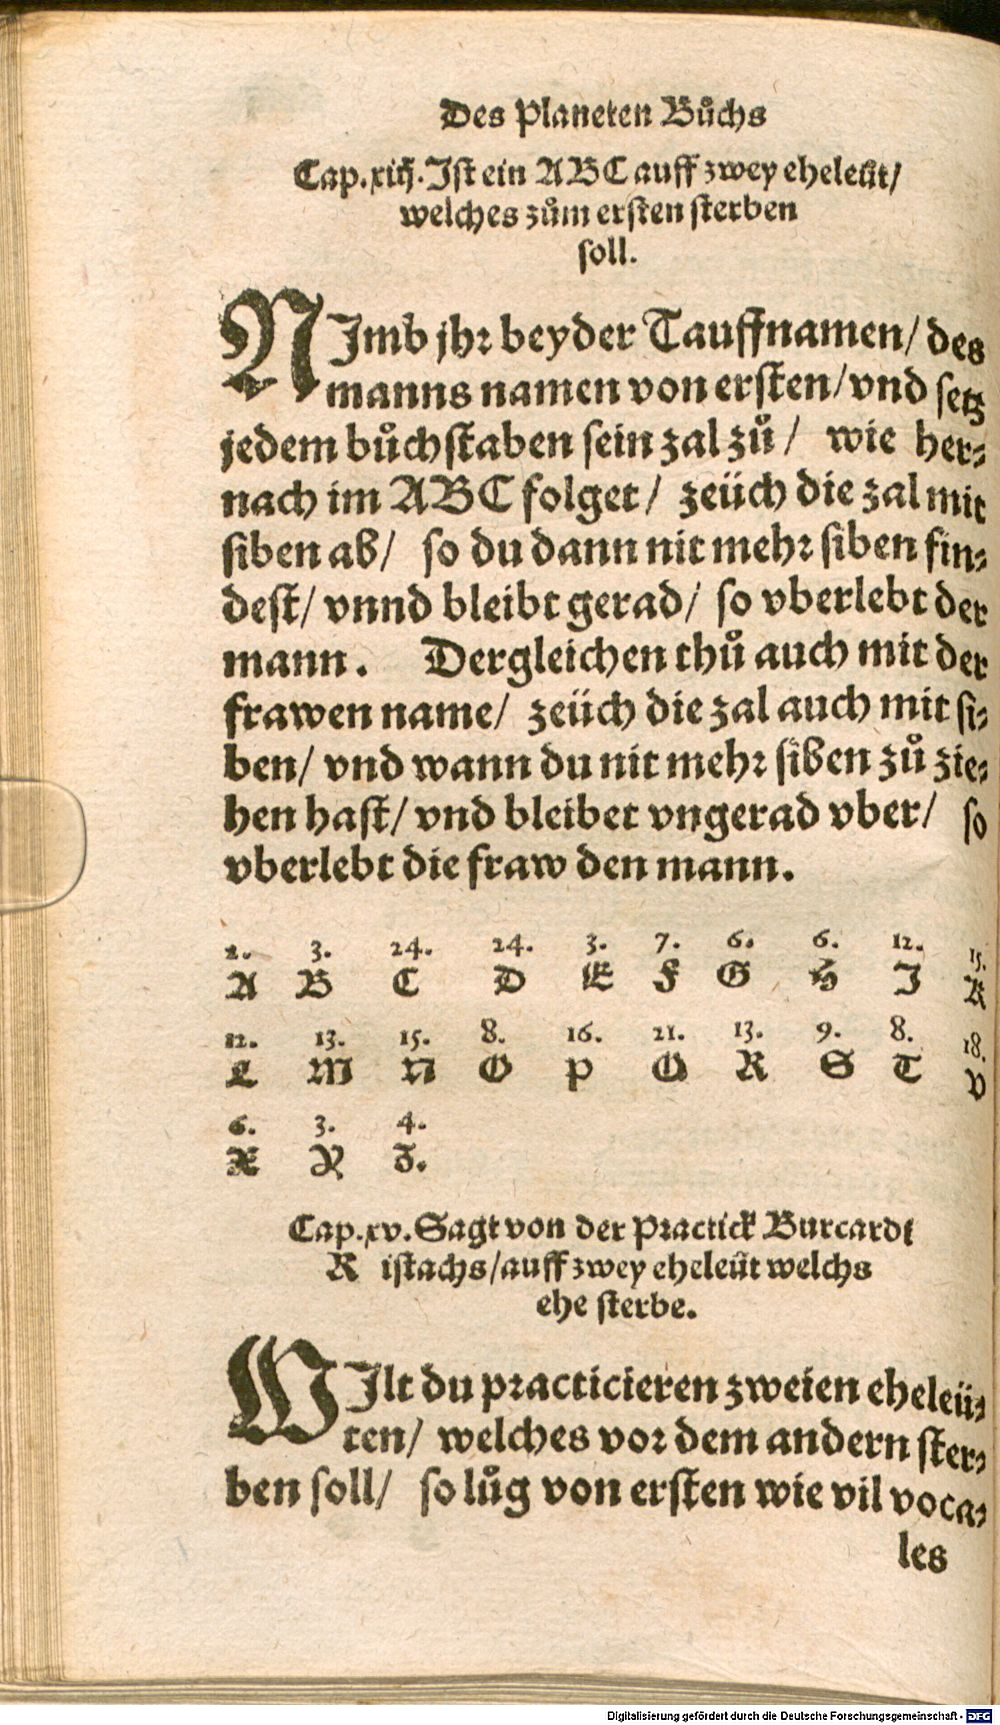 Des Planeten Bůchs
Cap.xiij. Ist ein ABC auff zwey eheleüt/
welches zům ersten sterben
soll.
NImb jhr beyder Tauffnamen/ des
manns namen von ersten/ vnd setz
jedem bůchstaben sein zal zů / wie her-
nach im ABC folget / zeüch die zal mit
siben ab/ so du dann nit mehr siben fin-
dest/ vnnd bleibt gerad/ so vberlebt der
mann. Dergleichen thů auch mit der
frawen name/ zeüch die zal auch mit si-
ben/ vnd wann du nit mehr siben zů zie-
hen hast/ vnd bleibet vngerad vber/ so
vberlebt die fraw den mann.
2. 3. 24. 24. 3. 7. 6. 6. 12. 15.
A B C D E F G H I K
12. 13. 15. 8. 16. 21. 13. 9. 8. 18.
L M N O P Q R S T V
6. 3. 4.
X Y Z.
Cap.xv. Sagt von der Practick Burcardt
R istachs/ auff zwey eheleüt welchs
ehe sterbe.
WIlt du practicieren zweien eheleü-
ten/ welches vor dem andern ster-
ben soll/ so lůg von ersten wie vil voca-
les
Digitalisierung gefördert durch die Deutsche Forschungsgemeinschaft - DFG